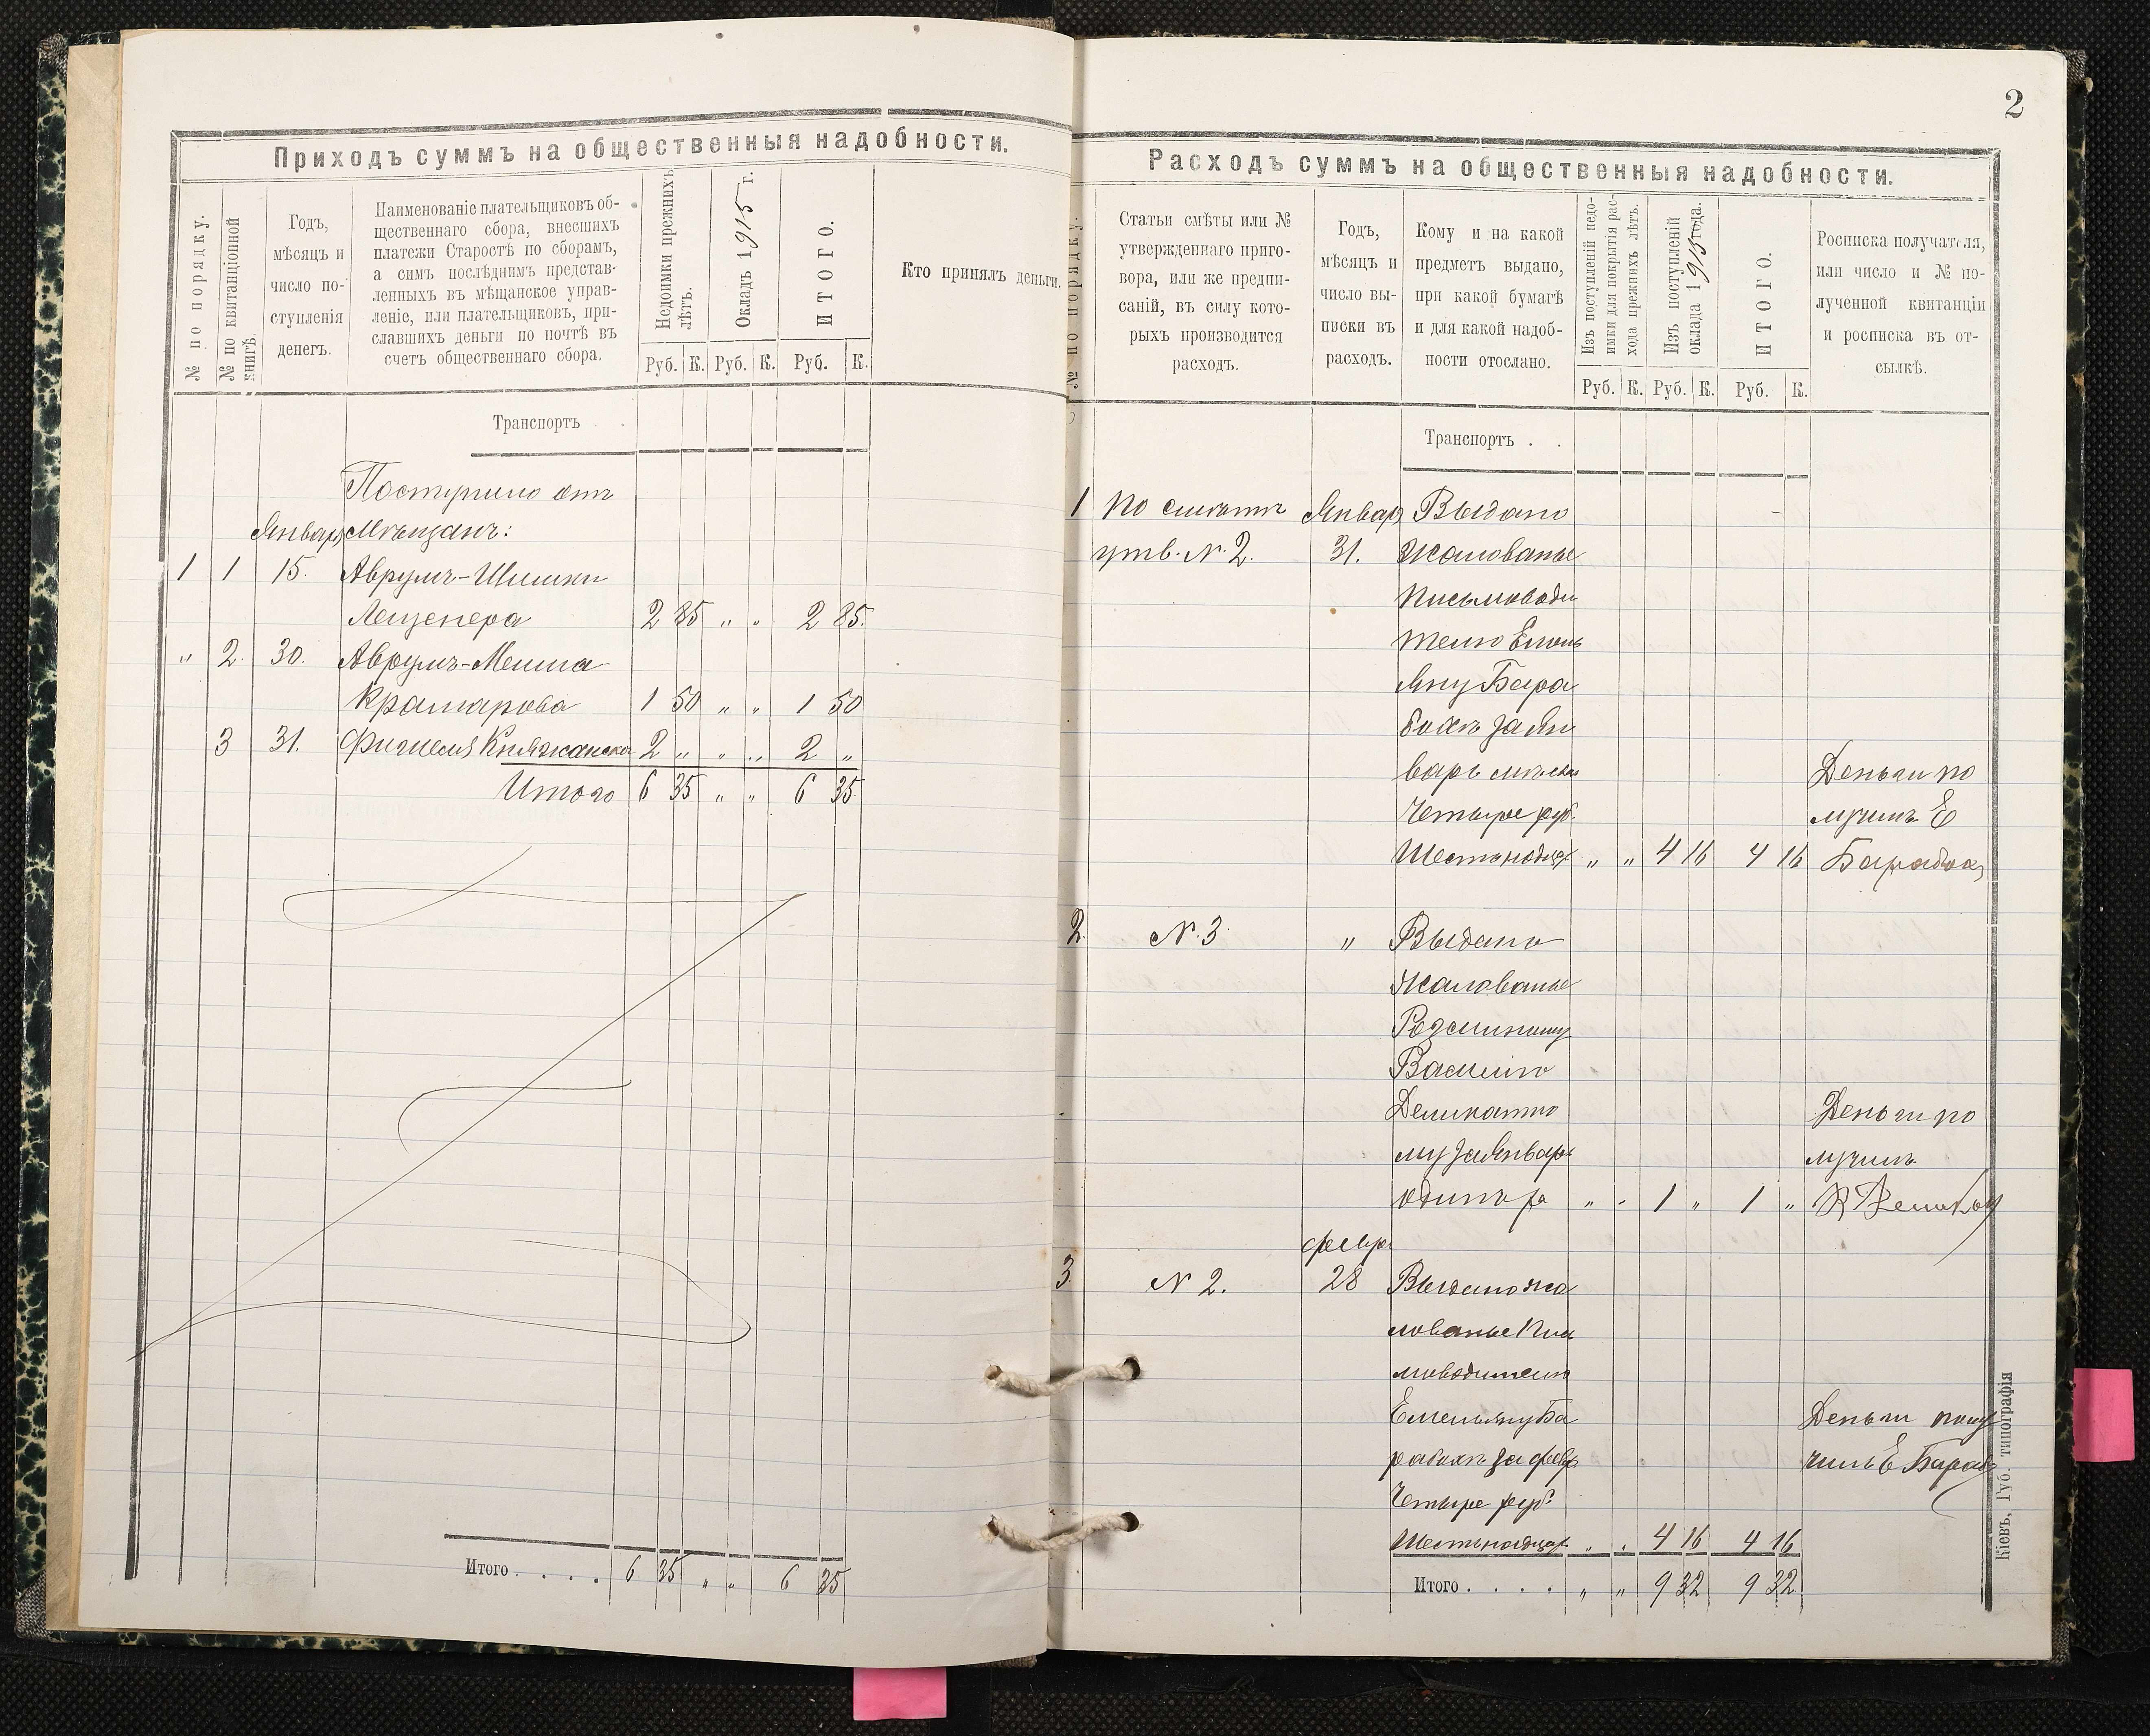 Приходъ суммъ на общественныя надобности.
№ по порядку.
№ по квитанціонной
книгѣ.
Годъ,
мѣсяцъ и
число по-
ступленія
денегъ.
Наименованіе плательщиковъ об-
щественнаго сбора, внесшихъ
платежи Старостѣ по сборамъ,
а симъ послѣднимъ представ-
ленныхъ въ мѣщанское управ-
леніе, или плательщиковъ, при-
славшихъ деньги по почтѣ въ
счетъ общественнаго сбора.
Недоимки прежнихъ
лѣтъ.
Окладъ 1915 г.
ИТОГО.
Кто принялъ деньги.
Руб. К. Руб. К. Руб. К.
Транспортъ
Поступило отъ
Январ Мѣщанъ:
1 1 15. Аврумъ-Шлимки
Лещенера
2 85 „ „ 2 85.
„ 2. 30. Аврумъ-Мешла
Крамарова 1 50 „ „ 1 50
3 31. Фишеля 2 „ „ „ 2 „
Итого 6 35 „ „ 6 35.
Итого . . . . 6 35 „ „ 6 35
2
Расходъ суммъ на общественныя надобности.
№ по порядку.
Статьи смѣты или №
утвержденнаго приго-
вора, или же предпи-
саній, въ силу кото-
рыхъ производится
расходъ.
Годъ,
мѣсяцъ и
число вы-
писки въ
расходъ.
Кому и на какой
предметъ выдано,
при какой бумагѣ
и для какой надоб-
ности отослано.
Изъ поступленій недо-
имки для покрытія рас-
хода прежнихъ лѣтъ.
Изъ поступленій
оклада 1915 года.
ИТОГО.
Росписка получателя,
или число и № по-
лученной квитанціи
и росписка въ от-
сылкѣ.
Руб. К. Руб. К. Руб. К.
Транспортъ . .
1 По смѣтѣ Январ Выдано
утв. N. 2. 31. Жалованье
письмоводи
телю Емель
яну Бара
бохъ за Ян
варь мѣсяцъ Деньги по
Четыре руб. лучилъ Е
Шестнадц. „ „ 4 16 4 16 Барабах
2. N. 3 „ Выдано
Жалованье
Разсильному
Василію
Деликатно Деньги по
му за Январ лучилъ
одинъ р „ „ 1 „ 1 „
февр.
3 N 2. 28 Выдано жа
лованье Пис
моводителю
Емельяну Ба Деньги полу
рабохъ за февр. чилъ Е Бараб
Четыре руб.
Шестнадцат „ „ 4 16 4 16
Итого . . . . „ „ 9 32 9 32
Кіевъ, Губ. типографія